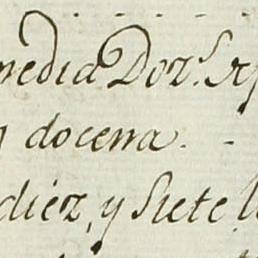 media Doz.ˢ
docena. -
diez, y Siete